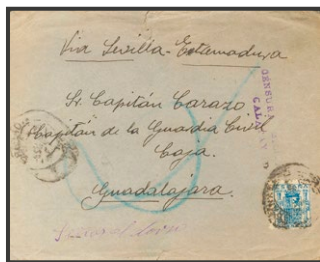 Via Sevilla-Estremadura
CENSURA
CALATAY
Sr. Capitán Carazo
Capitán de la Guardia Civil
Caja.
Guadalajara.